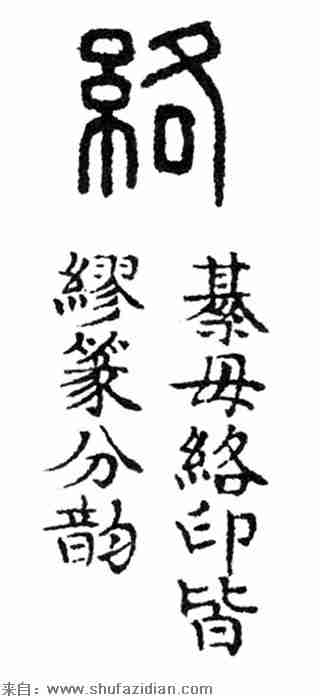 絡
綦毋絡印皆
繆篆分韵
来自：www.shufazidian.com